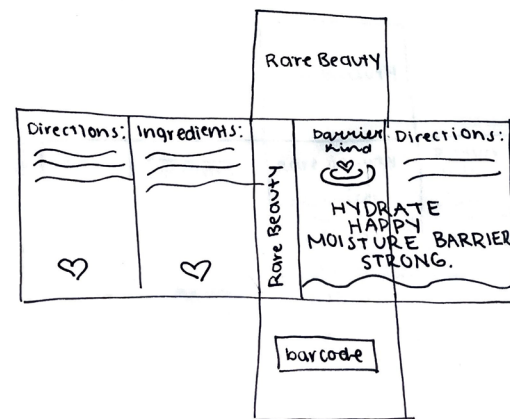 Rare Beauty
Directions:
Ingredients:
Rare Beauty
barrier
kind
Directions:
HYDRATE
HAPPY
MOISTURE BARRIER
STRONG.
barcode